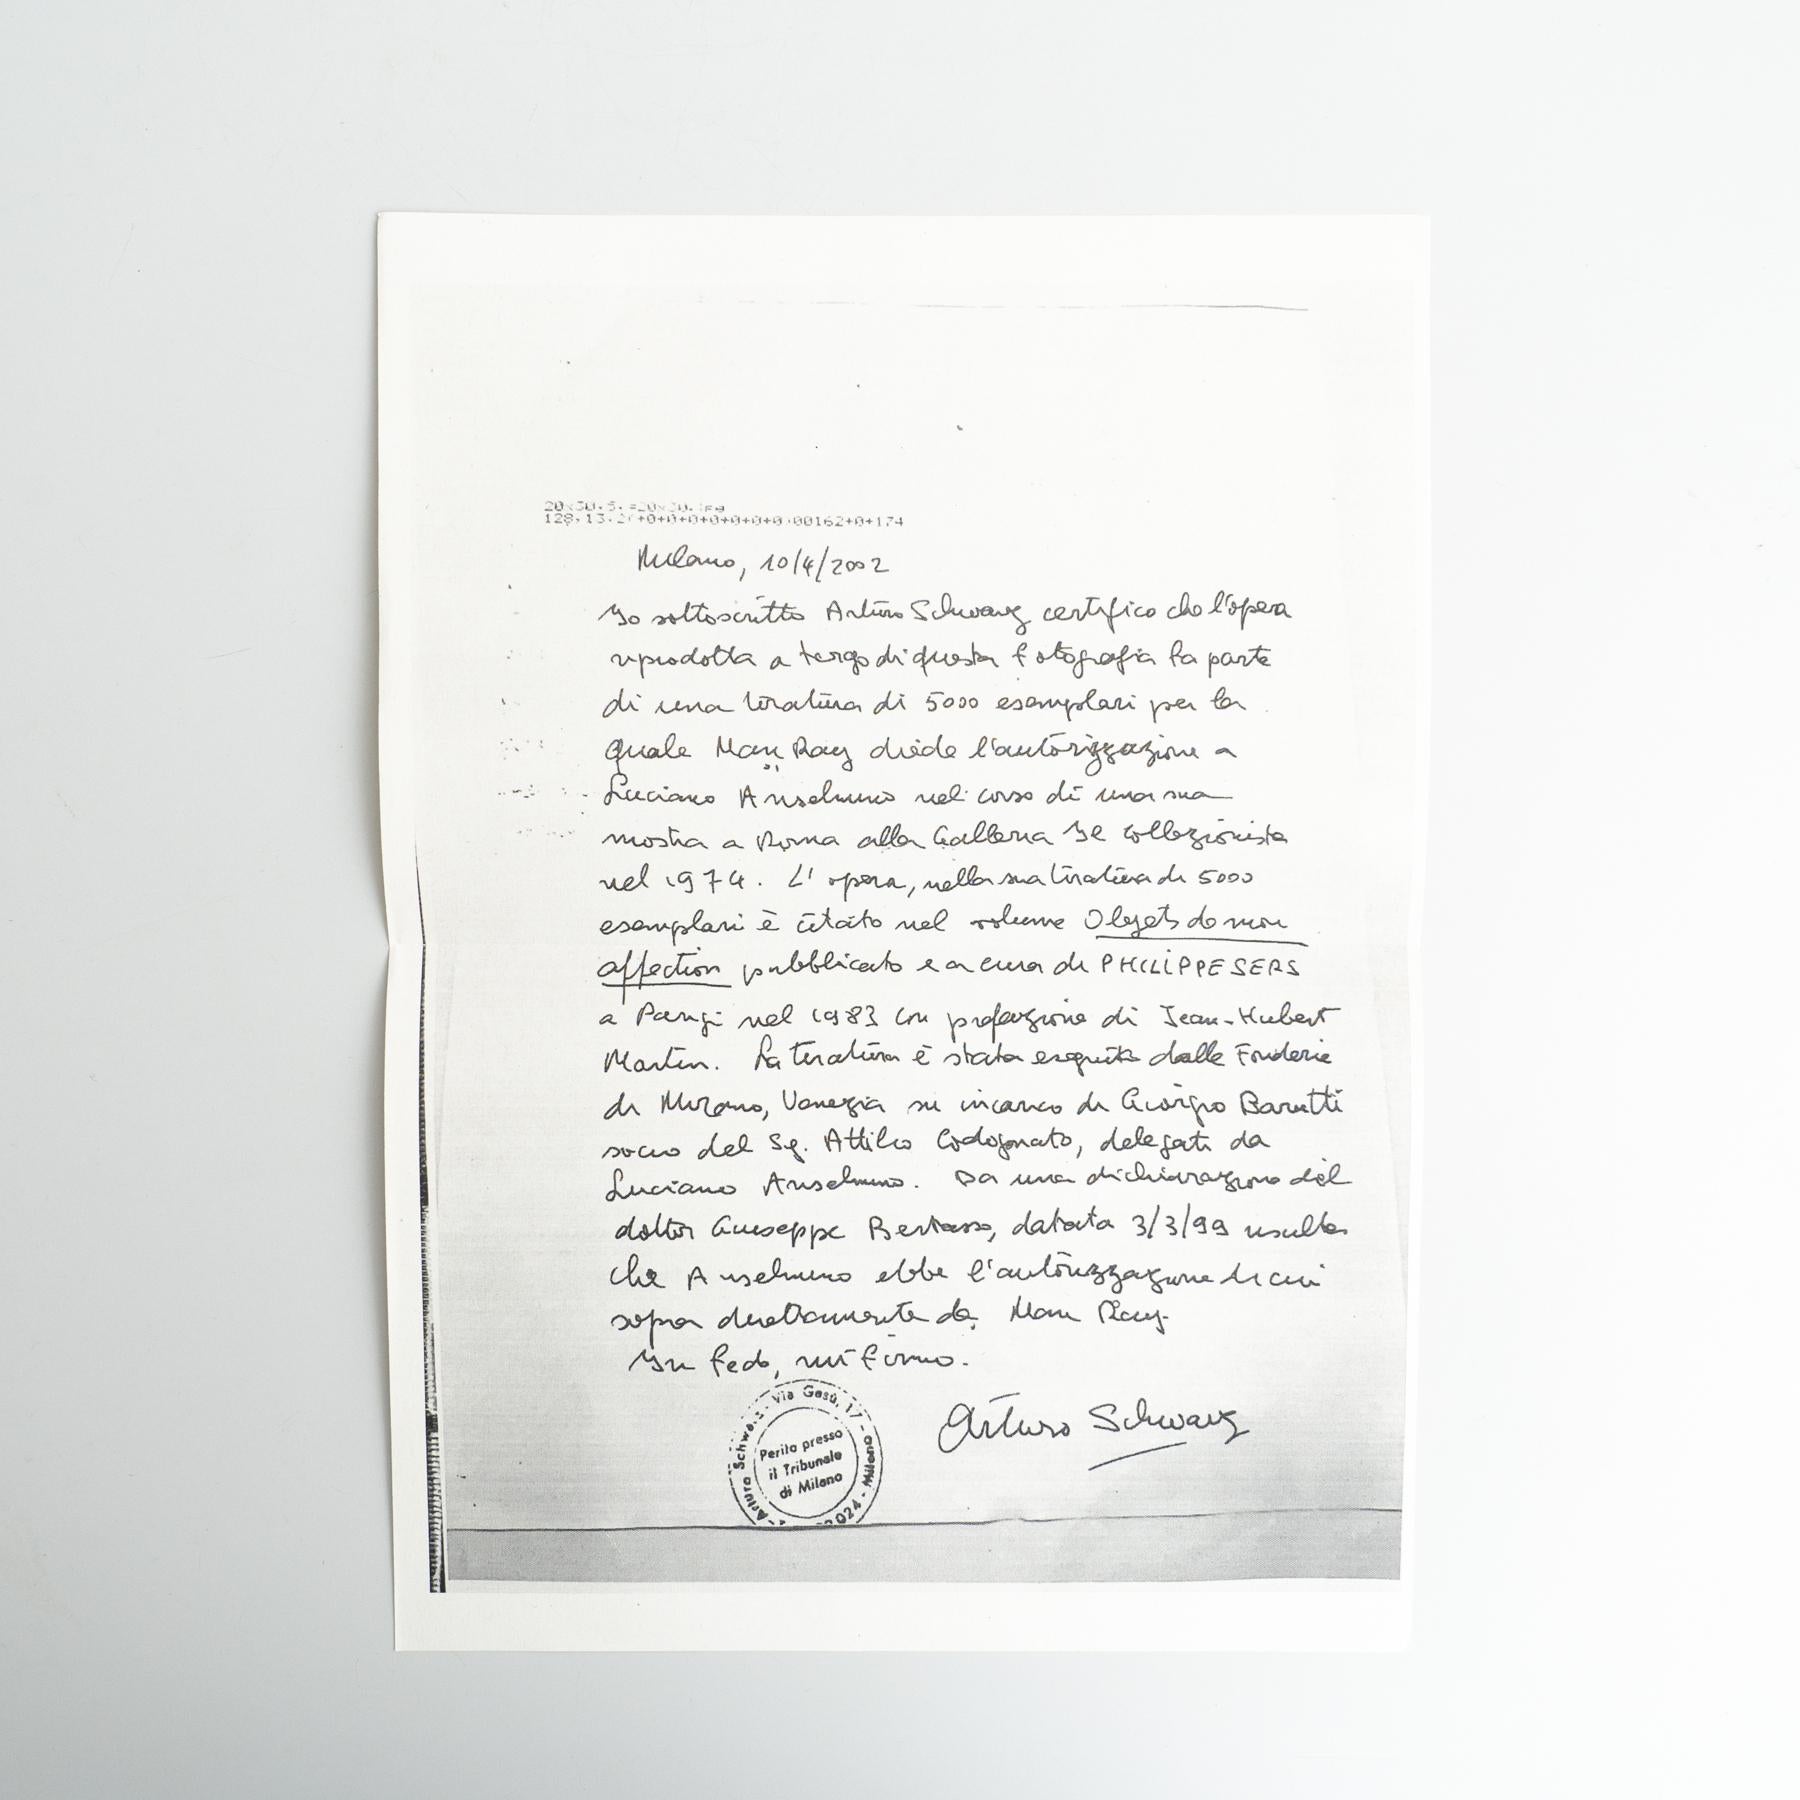 128,13.2(+0+0+0+0+0+0+0)00162+0+174
Milano, 10/4/2002
Io sottoscritto Arturo Schwarz certifico che l'opera
riprodotta a tergo di questa fotografia fa parte
di una tiratura di 5000 esemplari per la
quale Man Ray diede l'autorizzazione a
Luciano Anselmino nel corso di una sua
mostra a Roma alla Galleria Il Collezionista
nel 1974. L'opera, nella sua tiratura di 5000
esemplari è citato nel volume Objets de mon
affection pubblicato e a cura di PHILIPPE SERS
a Parigi nel 1983 con prefazione di Jean-Hubert
Martin. La tiratura è stata eseguita dalle Fonderie
di Mirano, Venezia su incarico di Giorgio Barutti
socio del Sg. Attilio Codognato, delegati da
Luciano Anselmino. Da una dichiarazione del
dottor Giuseppe Bertasso, datata 3/3/99 risulta
che Anselmino ebbe l'autorizzazione di cui
sopra direttamente da Man Ray.
In fede, mi firmo.
Arturo Schwarz
Arturo Schwarz - Via Gesù, 17 - Milano
Perito presso
il Tribunale
di Milano